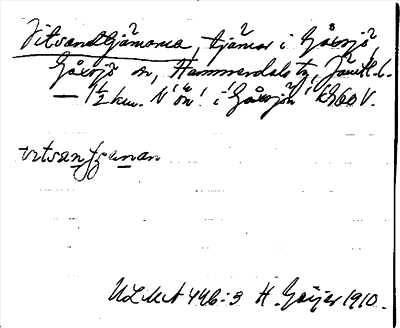 Vitvandtjärnarna, tjärnar i Gåxsjö,
Gåxsjö sn, Hammerdals tg, Jämtl. l.
— 1½ km. N "ön" i "Gåxsjön" K360V.
vitvantjɛnan
ULMA 446:3 H. Geijer 1910.